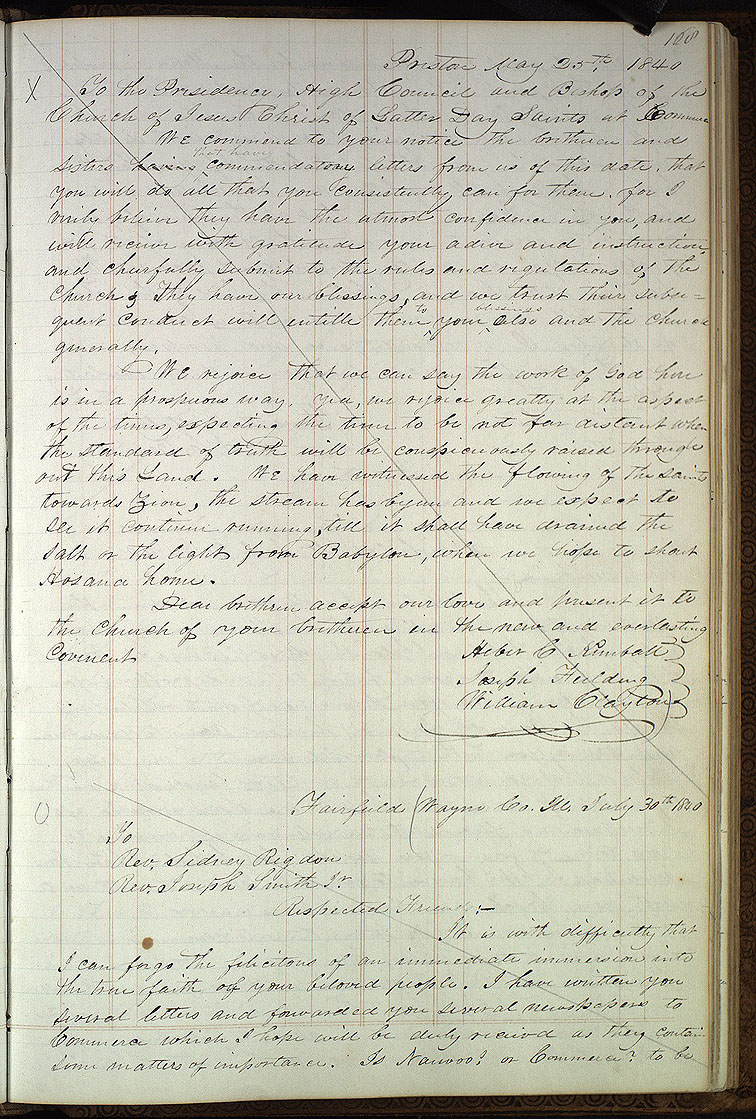 128
Preston May 25th 1840
X To the Presidency, High Council and Bishop of the
Church of Jesus Christ of Latter Day Saints at Commerce
We commend to your notice the brethren and
that have
sisters having commendatory letters from us of this date, that
you will do all that you consistently can for them. for I
verily believe they have the utmost confidence in you, and
will receive with gratitude your advice and instruction
and cheerfully submit to the rules and regulations of the
Church; They have our blessings, and we trust their subse-
quent conduct will entitle them to your blessings also and the church
generally.
We rejoice that we can say the work of God here
is in a prosperous way. Yea, we rejoice greatly at the aspect
of the times, expecting the time to be not far distant when
the standard of truth will be conspicuously raised through
out this Land. We have witnessed the flowing of the Saints
towards Zion, the stream has begun and we expect to
see it continue running, till it shall have drained the
salt or the light from Babylon, when we hope to shout
Hosana home.
Dear brethren accept our love and present it to
the church of your brethren in the new and everlasting
Covenent
Heber C Kimball
Joseph Fielding
William Clayton
O Fairfield (Wayne Co. Ill. July 30th 1840
To
Rev. Sidney Rigdon
Rev. Joseph Smith Jr
Respected Friends:-
It is with difficulty that
I can forgo the filicitous of an immediate immersion into
the true faith of your beloved people. I have written you
several letters and forwarded you several newspapers to
Commerce which I hope will be duly received as they contain
some matters of importance. Is Nauvoo? or Commerce? to be